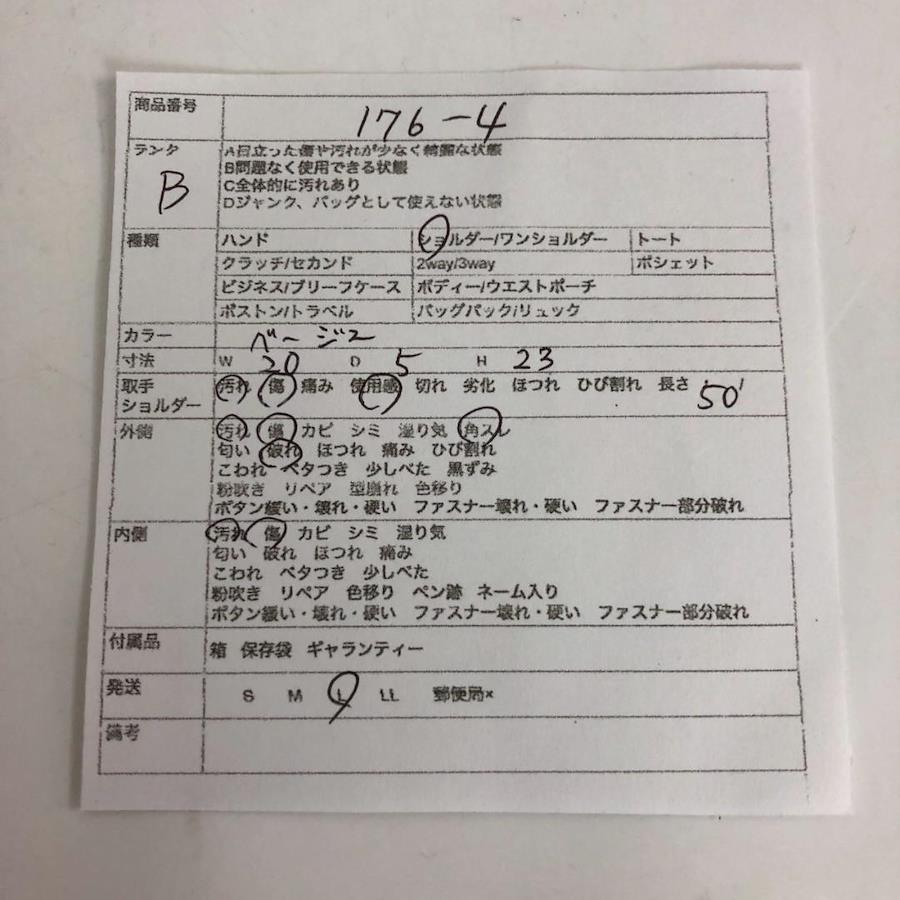 商品番号 176-4
ランク B
A目立った傷や汚れが少なく綺麗な状態
B問題なく使用できる状態
C全体的に汚れあり
Dジャンク、バッグとして使えない状態
種類 ハンド ショルダー/ワンショルダー トート
クラッチ/セカンド 2way/3way ポシェット
ビジネス/ブリーフケース ボディー/ウエストポーチ
ボストン/トラベル バッグパック/リュック
カラー ベージュ
寸法 W 20 D 5 H 23
取手 汚れ 傷 痛み 使用感 切れ 劣化 ほつれ ひび割れ 長さ 50
ショルダー
外側 汚れ 傷 カビ シミ 湿り気 角スレ
匂い 破れ ほつれ 痛み ひび割れ
こわれ ベタつき 少しべた 黒ずみ
粉吹き リペア 型崩れ 色移り
ボタン緩い・壊れ・硬い ファスナー壊れ・硬い ファスナー部分破れ
内側 汚れ 傷 カビ シミ 湿り気
匂い 破れ ほつれ 痛み
こわれ ベタつき 少しべた
粉吹き リペア 色移り ペン跡 ネーム入り
ボタン緩い・壊れ・硬い ファスナー壊れ・硬い ファスナー部分破れ
付属品 箱 保存袋 ギャランティー
発送 S M L LL 郵便局×
備考